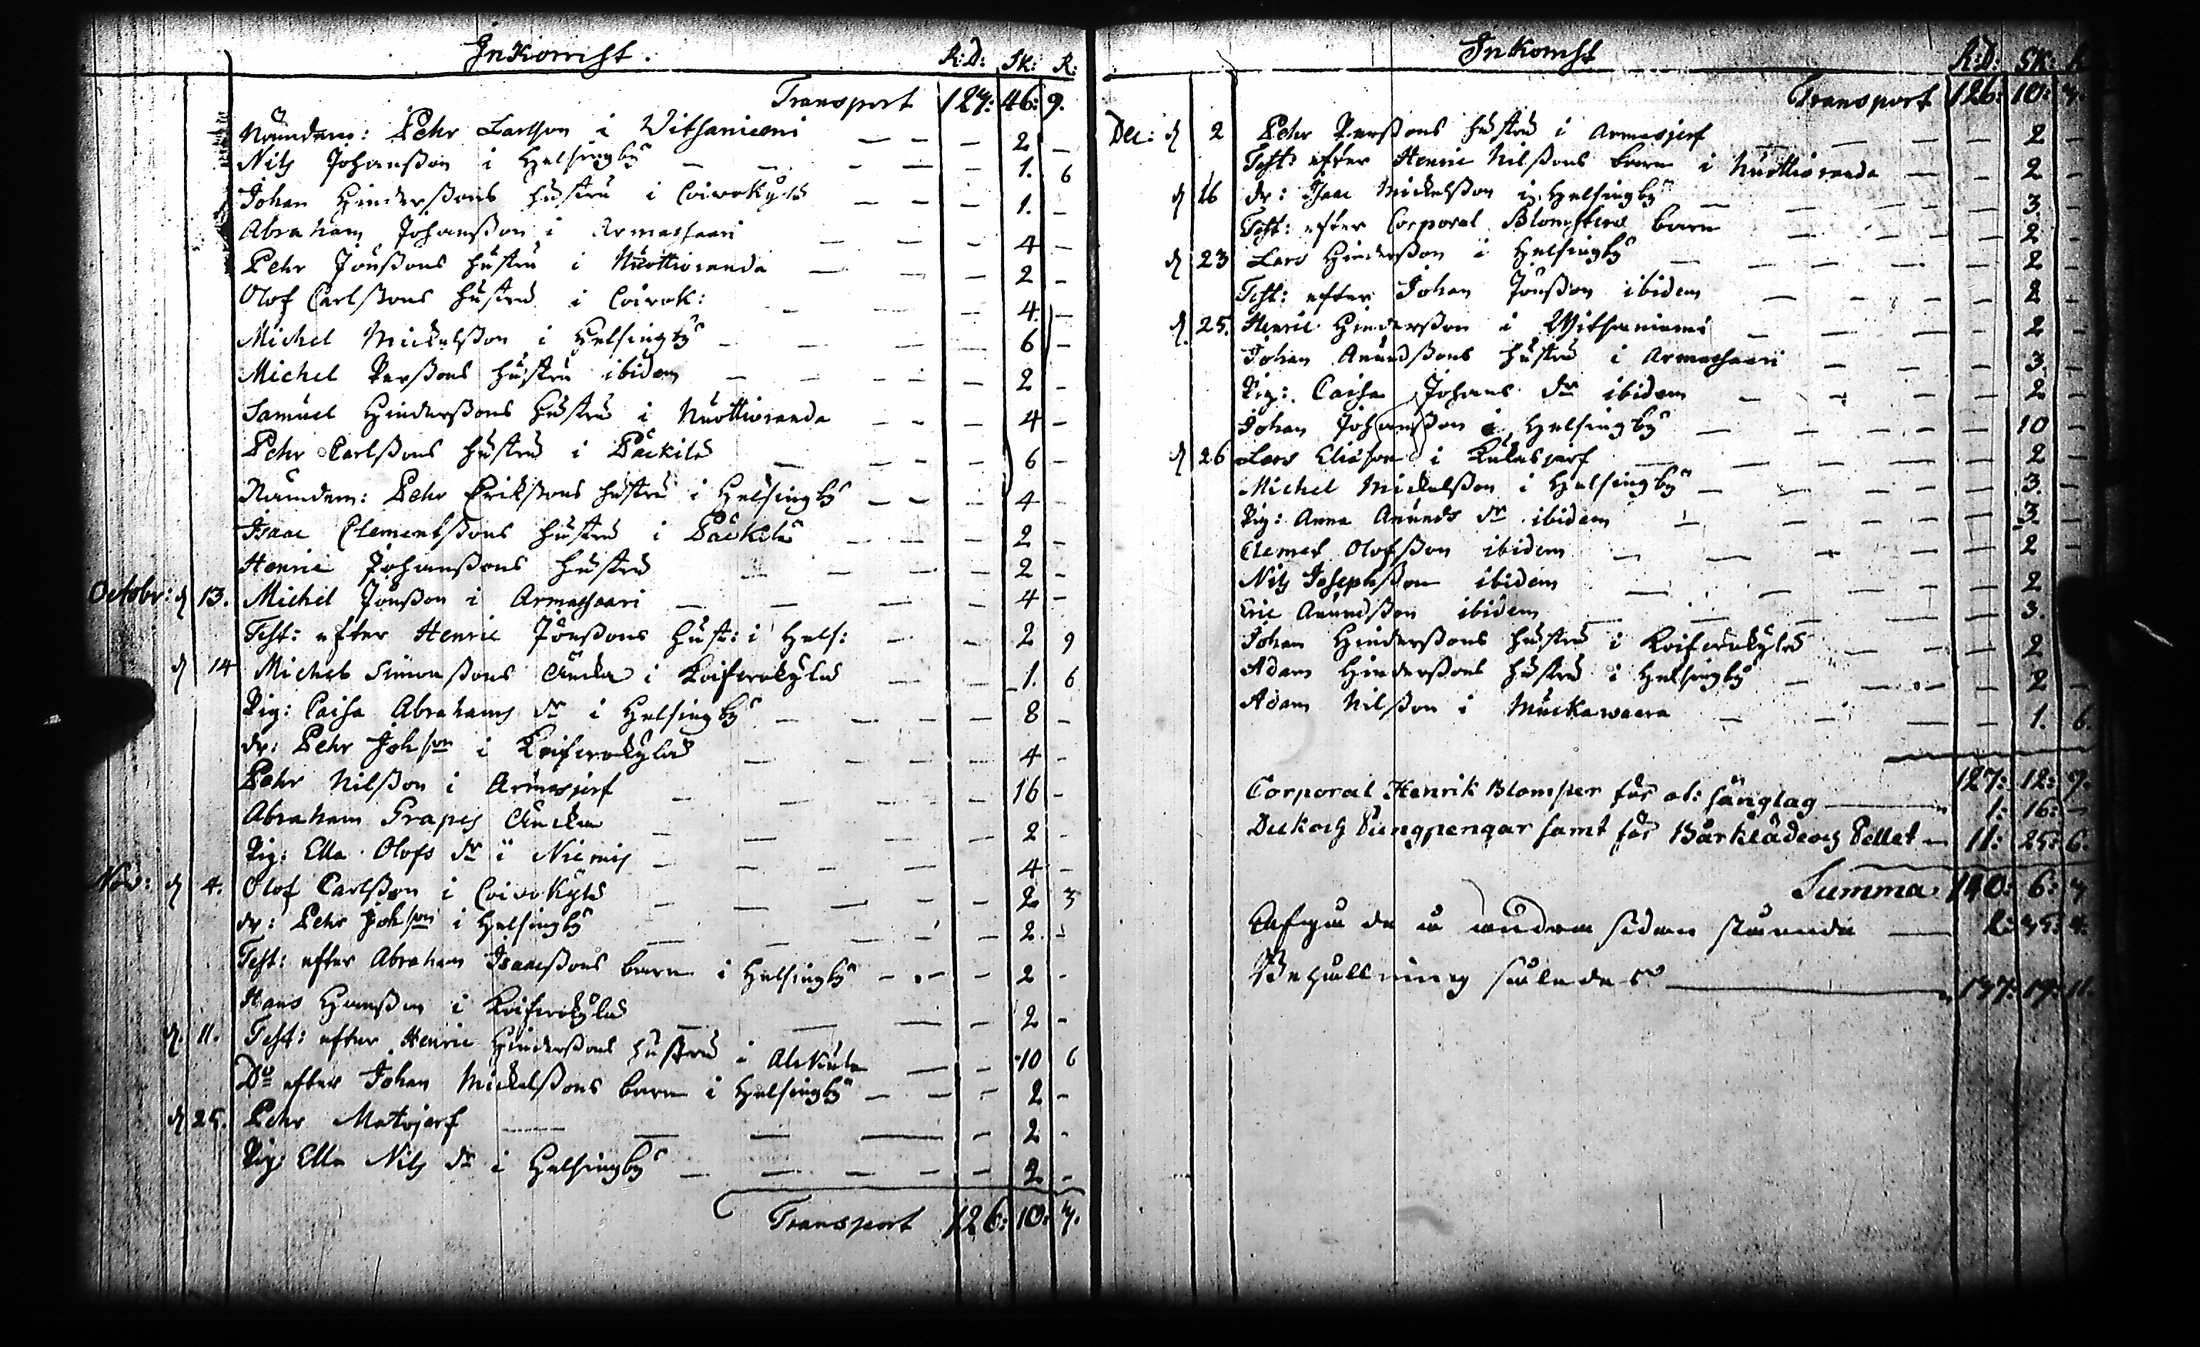 Inkomst.
R:D: Sk: R:
Transport 127: 46: 9.
Nämdem: Pehr Larsson i Witsaniemi — — — 2 —
Nils Johanßon i Helsingby — — — 1. 6
Johan Hinderßons hustru i Coivokylä — — — 1. —
Abraham Johanßon i Armassaari — — — 4 —
Pehr Jönßons hustru i Nuottioranda — — — 2 —
Olof Carlßons hustru i Coivok: — — — 4. —
Michel Mickelßon i Helsingby — — — 6 —
Michel Perßons hustru ibidem — — — 2 —
Samuel Hinderßons hustru i Nuottioranda — — — 4 —
Pehr Carlßons hustru i Päckilä — — — 6 —
Nämdem: Pehr Erikßons hustru i Helsingby — — — 4 —
Isaac Clementßons hustru i Päckilä — — — 2 —
Henric Johanßons hustru — — — 2 —
Octobr: d 13. Michel Jönßon i Armassaari — — — 4 —
Test: efter Henric Jönßons hust: i Hels: — — 2 9
d 14 Michels Simonßons Änka i Koiferikylä — — 1. 6
Pig: Caisa Abrahams dr i Helsingby — — — 8 —
dr: Pehr Johson i Koiferikylä — — — 4 —
Pehr Nilßon i Armasjerf — — — 16 —
Abraham Grapes Änka — — — 2 —
Pig: Ella Olofs dr i Niemis — — — 4 —
Nov: d 4. Olof Carlßon i Coivokylä — — — 2 3
dr: Pehr Johson i Helsingby — — — 2 —
Test: efter Abraham Isaacßons barn i Helsingby — — — 2 —
Hans Hansßon i Koiferikylä — — — 2 —
d 11. Test: efter Henric Hinderßons hustru i Alkula — — 10 6
Do efter Johan Mickelßons barn i Helsingby — — — 2 —
d 25. Pehr Matojerf — — — 2 —
Pig: Ella Nils dr i Helsingby — — — 2 —
Transport 126: 10: 7.
Inkomst
R:D: Sk: R
Transport 126: 10: 7.
Dec: d 2 Pehr Perßons hustru i Armasjerf — — — 2 —
Test: efter Henric Nilßons barn i Nuottioranda — — 2 —
d 16 dr: Isaac Mickelßon i Helsingby — — — 3. —
Test: efter Corporal Blomsters barn — — — 2 —
d 23 Lars Hinderßon i Helsingby — — — 2 —
Test: efter Johan Jönßon ibidem — — — 2 —
d 25. Henric Hinderßon i Witsaniemi — — — 2 —
Johan Anundßons hustru i Armassaari — — — 3. —
Pig: Caisa Johans dr ibidem — — — 2 —
Johan Johanßon i Helsingby — — — 10 —
d 26 Lars Elisson i Kukasjerf — — — 2 —
Michel Mickelßon i Helsingby — — — 3. —
Pig: Anna Anunds dr ibidem — — — 3. —
Clemet Olofßon ibidem — — — 2 —
Nils Josephßon ibidem — — — 2
Eric Anundßon ibidem — — — 3.
Johan Hinderßons hustru i Koiferikylä — — — 2
Adam Hinderßons hustru i Helsingby — — — 2 —
Adam Nilßon i Muckawaara — — — 1. 6.
127: 12: 9.
Corporal Henrik Blomster för et: sånglag — 1: 16: —
Duk och Pungpengar samt för Bårkläde och Pellet — 11: 25: 6.
Summa 140: 6: 3
Afgå de å andra sidan stående — 2: 35: 4.
Behållning således — 137: 19: 11.